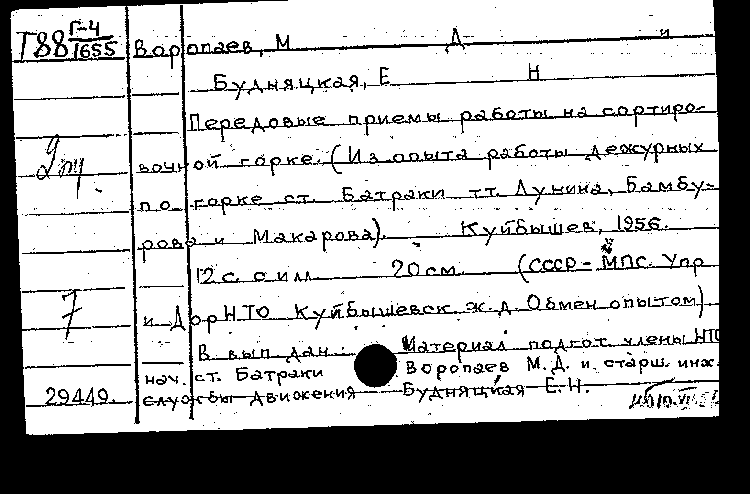 Т88 Г-4
1655
Воропаев, М Д и
Будняцкая, Е Н
Передовые приемы работы на сортиро-
вочной горке. (Из опыта работы дежурных
по горке ст. Батраки тт. Лунина, Бамбу-
рова и Макарова). Куйбышев, 1956.
12 с. с илл. 20 см. (СССР - МПС. Упр
и ДорНТО Куйбышевск. ж. д. Обмен опытом)
В вып. дан.: Материал подгот. члены НТО
нач. ст. Батраки Воропаев М. Д. и старш. инж.
службы движения Будняцкая Е. Н.
7
29449.